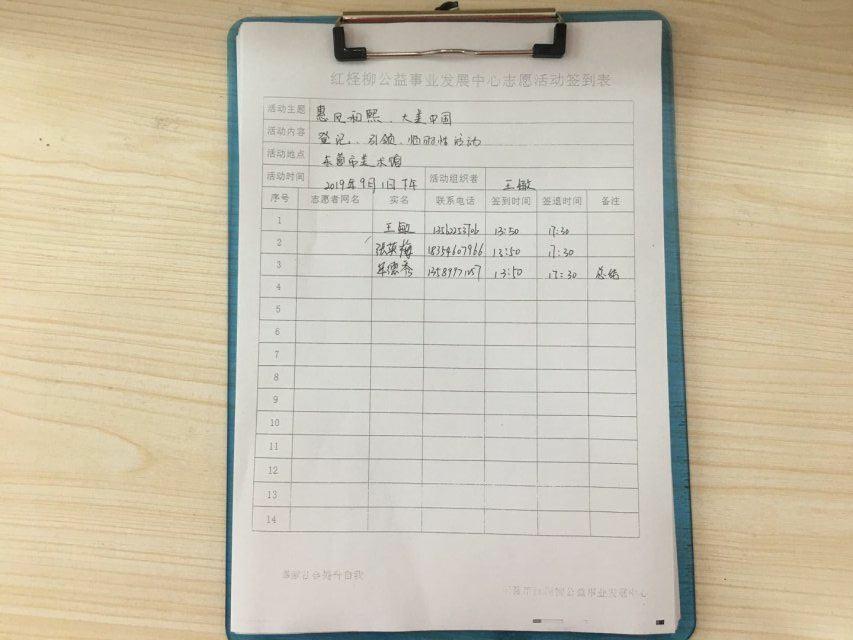 红柽柳公益事业发展中心志愿活动签到表
活动主题 惠风和熙、大美中国
活动内容 登记、引领、临时性活动
活动地点 东营市美术馆
活动时间 2019年9月1日下午 活动组织者 王敏
序号 志愿者网名 实名 联系电话 签到时间 签退时间 备注
1 王敏 13:50 17:30
2 张英梅 18354607966 13:50 17:30
3 牟德秀 13589971057 13:50 17:30 总结
4
5
6
7
8
9
10
11
12
13
14
公益事业发展中心